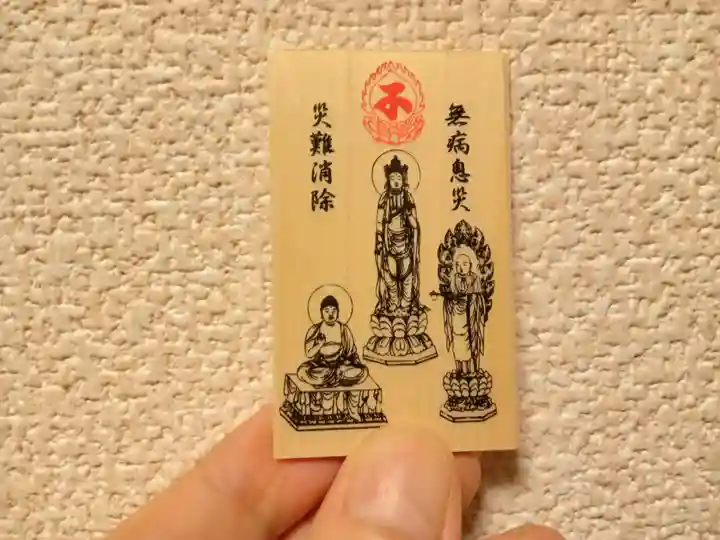 不
無病息災
災難消除